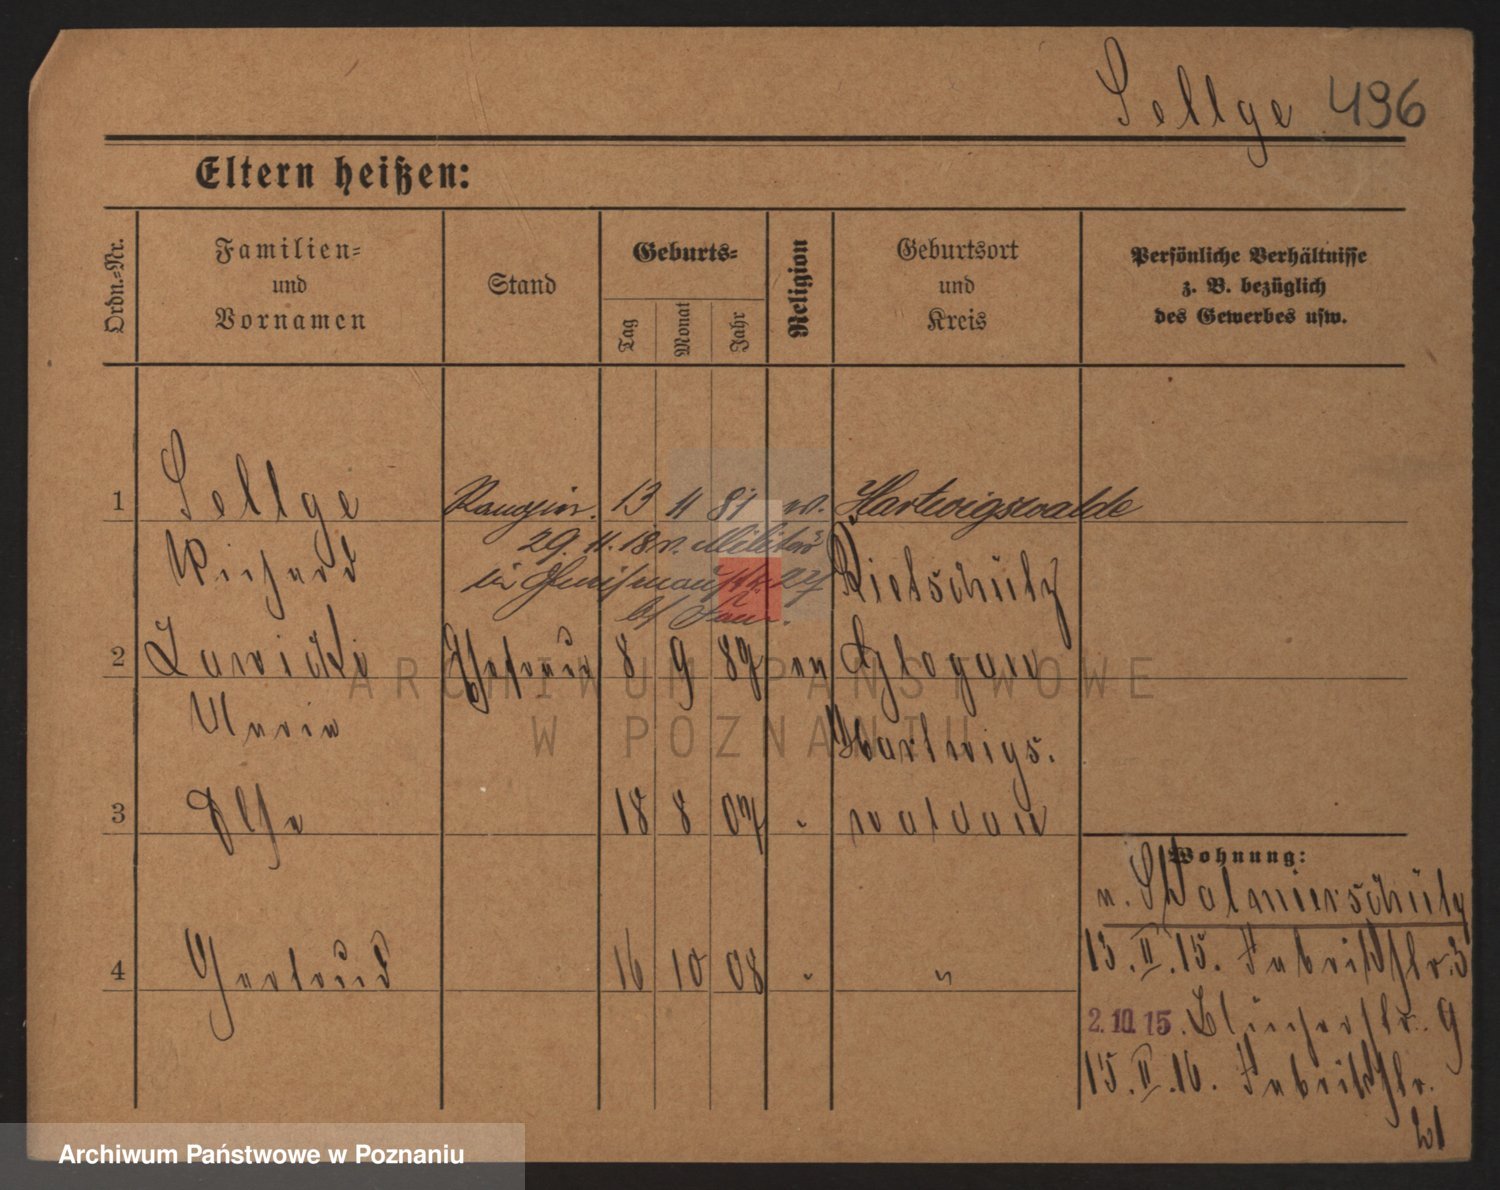 Sellge 496
Eltern heißen:
Ordn.-Nr.
Familien-
und
Vornamen
Stand
Geburts-
Tag
Monat
Jahr
Religion
Geburtsort
und
Kreis
Persönliche Verhältnisse
z. B. bezüglich
des Gewerbes usw.
1 Sellge 13 11 81 Hartwigswalde
Richard 29. 11. 18 v. Militär
2 Zawicki Ehefrau 8 9 89 Glogau
Maria Hartwigs.
3 Else 18 8 07 waldau
Wohnung:
4 Gertrud 16 10 08 "
13. II. 15. Fabrikstr. 3
2.10.15. Blücherstr. 9
15. II. 16. Fabrikstr.
21
ARCHIWUM PAŃSTWOWE
W POZNANIU
Archiwum Państwowe w Poznaniu